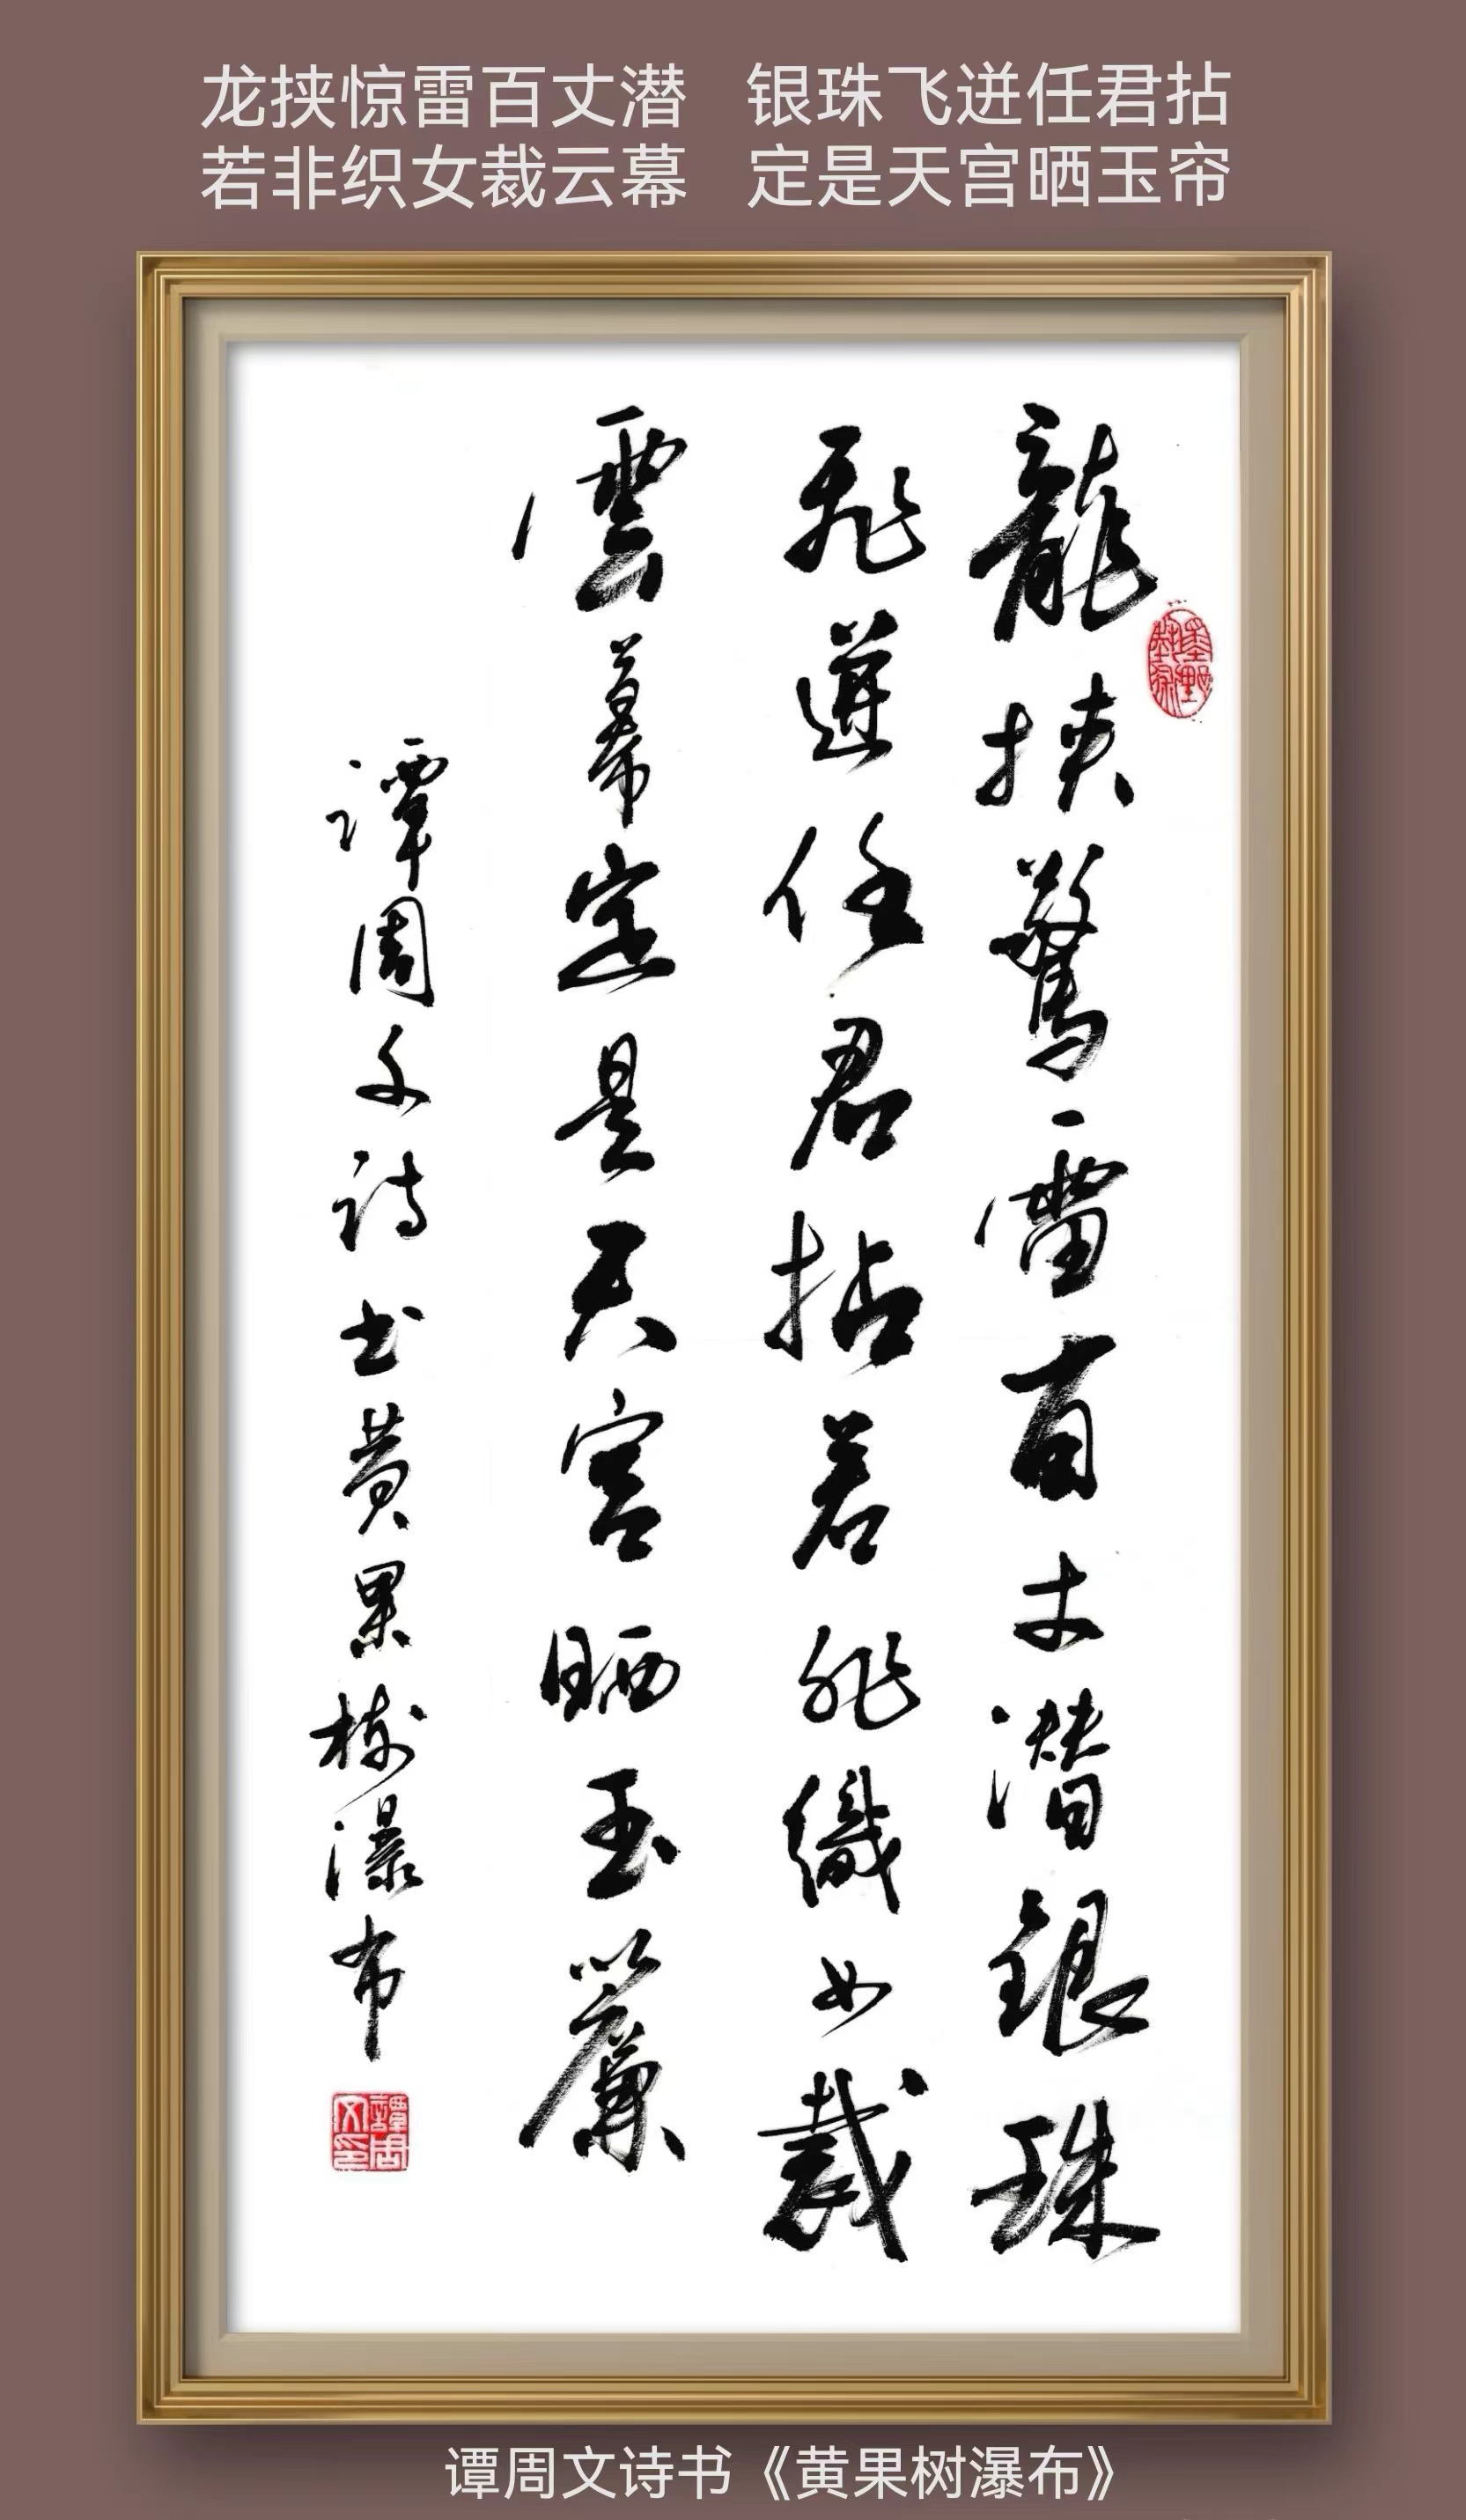 龙挟惊雷百丈潜　银珠飞迸任君拈
若非织女裁云幕　定是天宫晒玉帘
龍挟驚雷百丈潜銀珠
飛迸任君拈若非織女裁
雲幕定是天宫晒玉簾
譚周文詩书黄果树瀑布
譚周文印
谭周文诗书《黄果树瀑布》